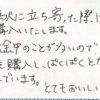 沢に立ち寄った際に
購入いたします。
途中のことが多いので
を購入し、ぱくぱくとか
ています。
とてもおいしい